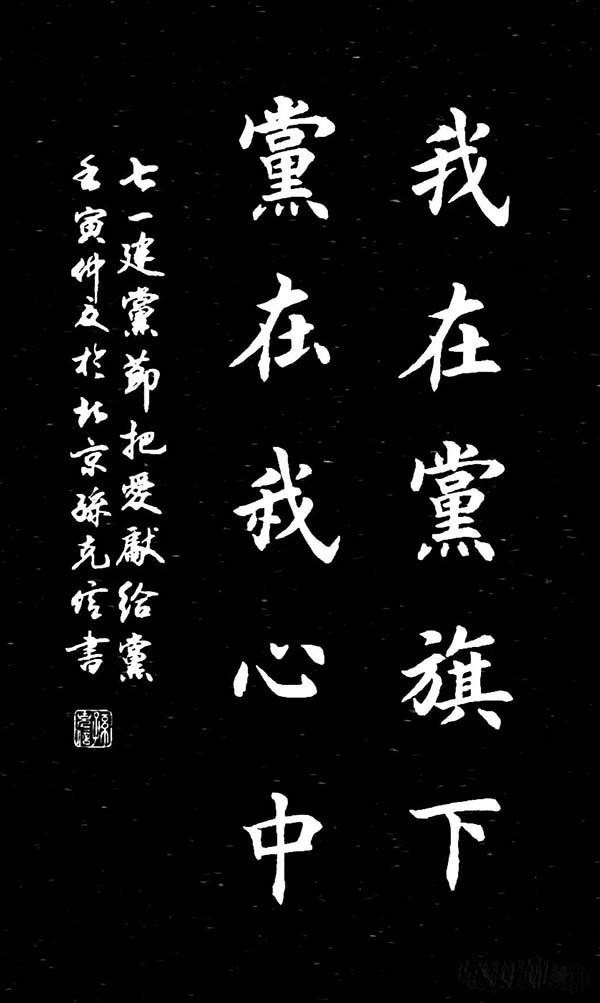 我在黨旗下
黨在我心中
七一建黨節把愛獻給黨
壬寅仲夏於北京孫克信書